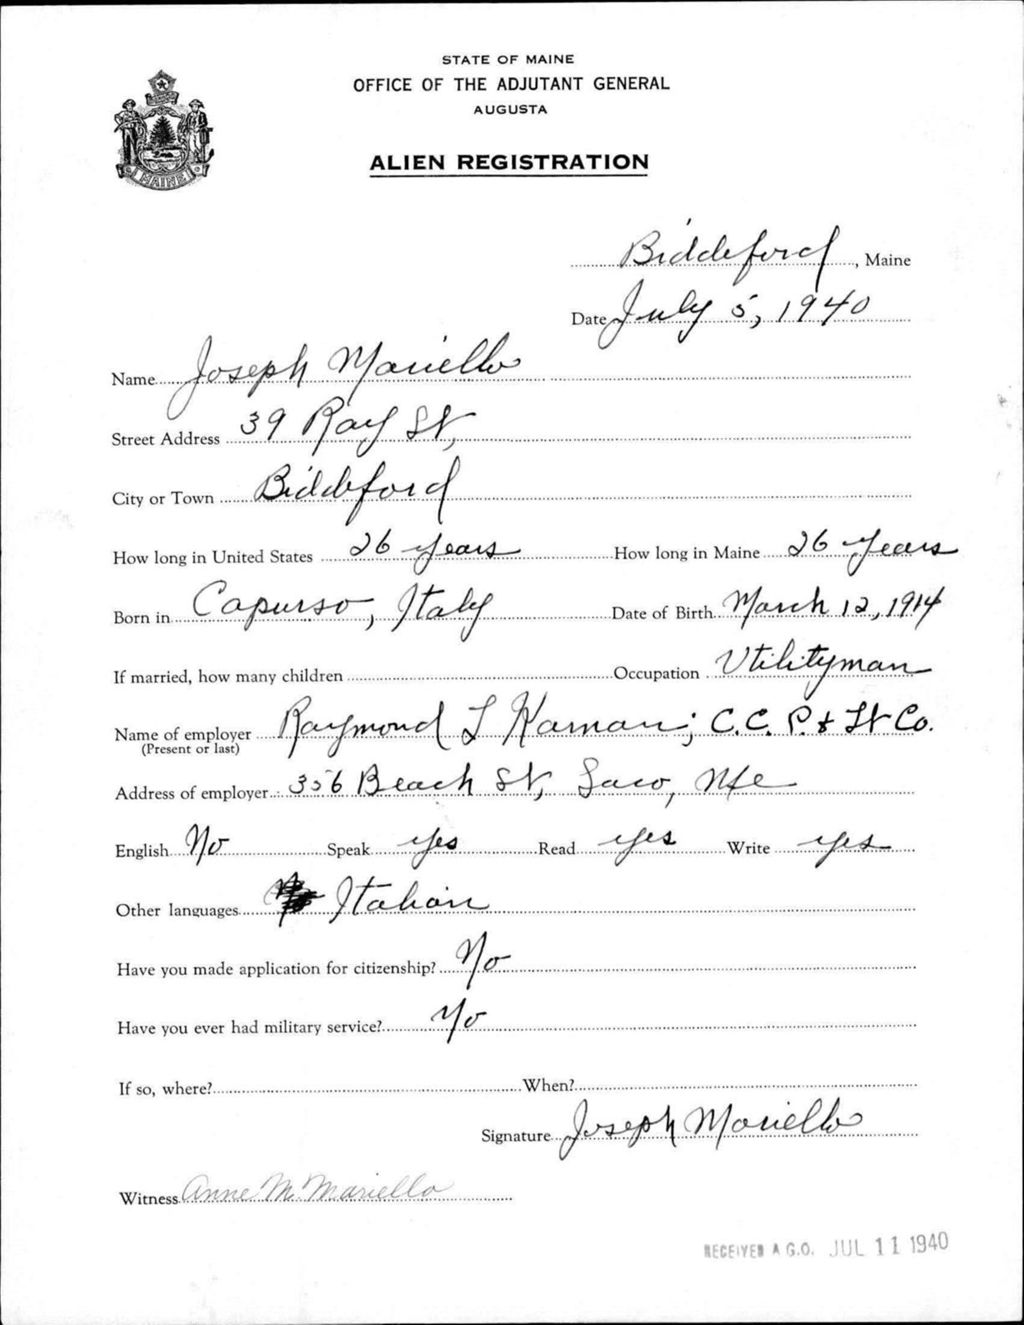 STATE OF MAINE
OFFICE OF THE ADJUTANT GENERAL
AUGUSTA
ALIEN REGISTRATION
MAINE
Biddeford, Maine
Date July 5, 1940
Name Joseph Mariello
Street Address 39 Ray St,
City or Town Biddeford
How long in United States 26 years How long in Maine 26 years
Born in Capurso, Italy Date of Birth March 12, 1914
If married, how many children Occupation Utilityman
Name of employer Raymond L Haman; C. C. P. & Lt Co.
(Present or last)
Address of employer 356 Beach St, Saco, Me
English No Speak yes Read yes Write yes
Other languages Italian
Have you made application for citizenship? No
Have you ever had military service? No
If so, where? When?
Signature Joseph Mariello
Witness Anne M. Mariello
RECEIVED A.G.O. JUL 11 1940